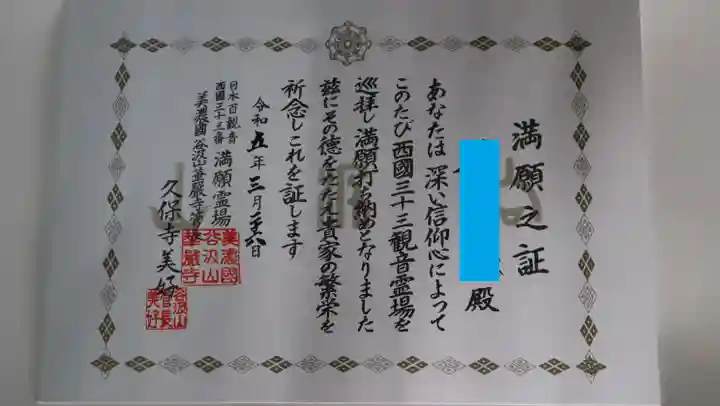 満願之証
殿
あなたは深い信仰心によって
このたび西國三十三観音霊場を
巡拝し満願打ち納めとなりました
茲にその徳をたたえ貴家の繁栄を
祈念しこれを証します
令和五年三月二十六日
日本百観音
西國三十三番
満願霊場
美濃國谷汲山華厳寺
久保寺美好
美濃國
谷汲山
華厳寺
谷汲山
管長
美好